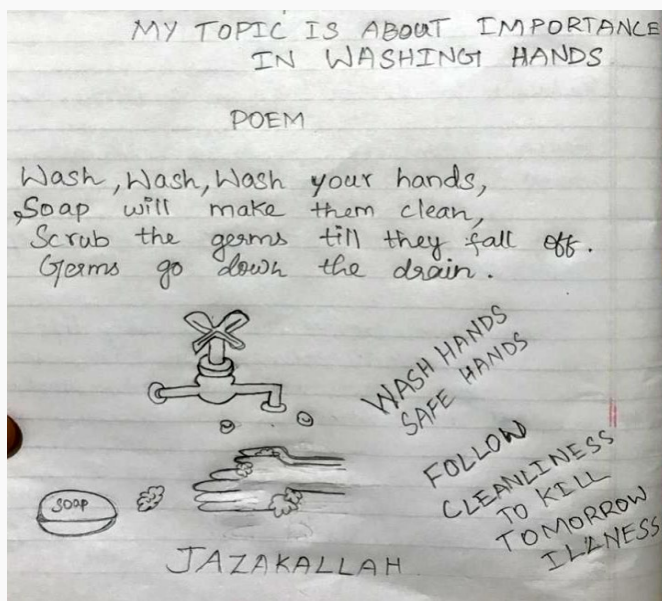 MY TOPIC IS ABOUT IMPORTANCE
IN WASHING HANDS
POEM
Wash, Wash, Wash your hands,
Soap will make them clean,
Scrub the germs till they fall off.
Germs go down the drain.
WASH HANDS
SAFE HANDS
FOLLOW
CLEANLINESS
TO KILL
TOMORROW
ILLNESS
SOAP
JAZAKALLAH